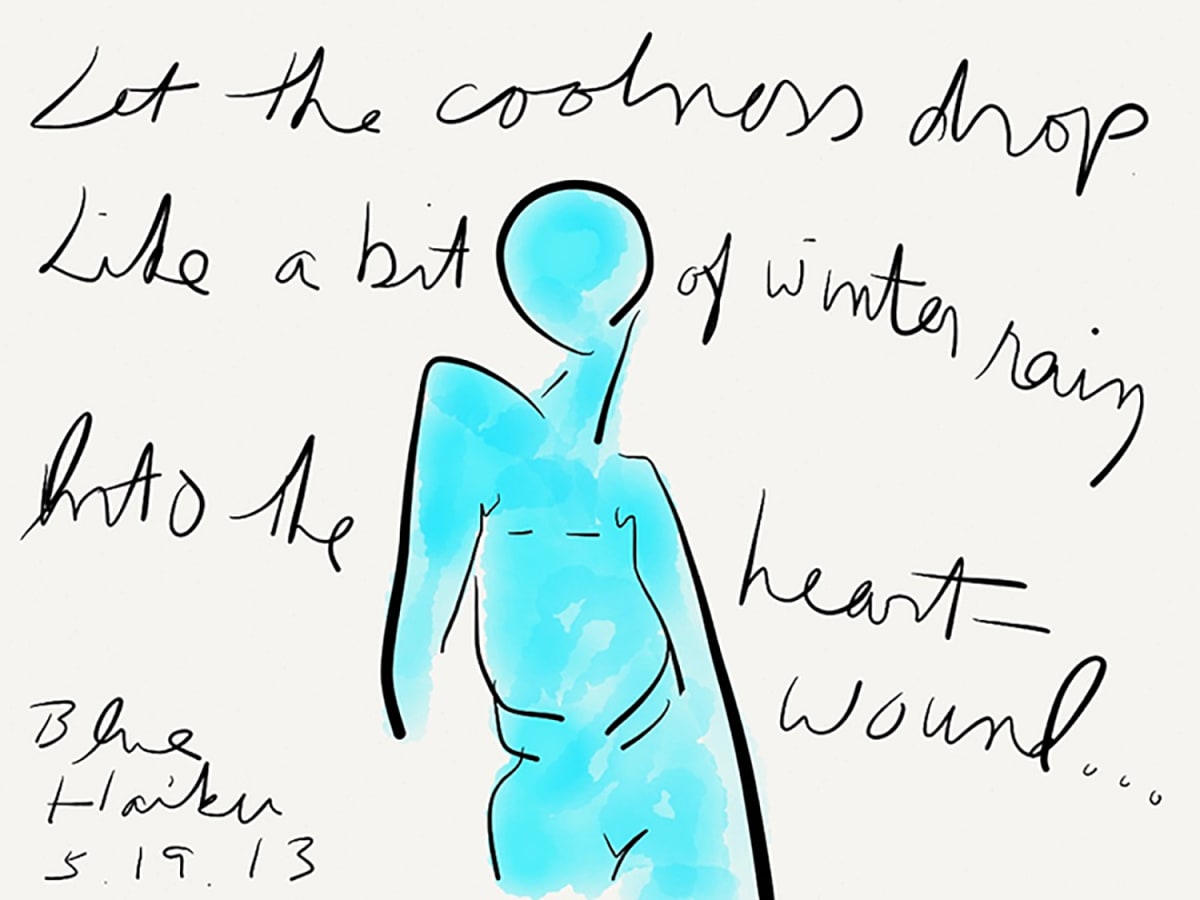 Let the coolness drop
Like a bit of winter rain
Into the heart=
wound...
Blue
Haiku
5.19.13